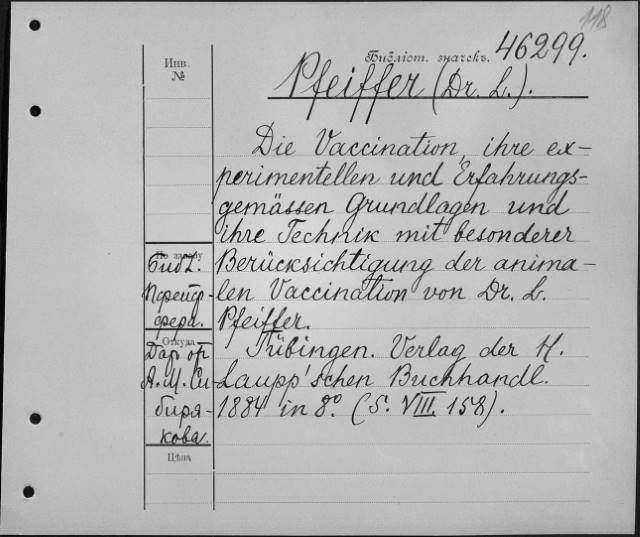 118
Библіот. значекъ. 46299.
Инв.
№
Pfeiffer (Dr. L.).
Die Vaccination, ihre ex-
perimentellen und Erfahrungs-
gemässen Grundlagen und
ihre Technik mit besonderer
Berücksichtigung der anima-
len Vaccination von Dr. L.
Pfeiffer.
Tübingen. Verlag der H.
Laupp'schen Buchhandl.
1884 in 8º. (S. VIII. 158).
По заказу
Библ.
Пфейф-
фера.
Откуда
Даръ от
А. М. Си-
биря-
кова.
Цѣна